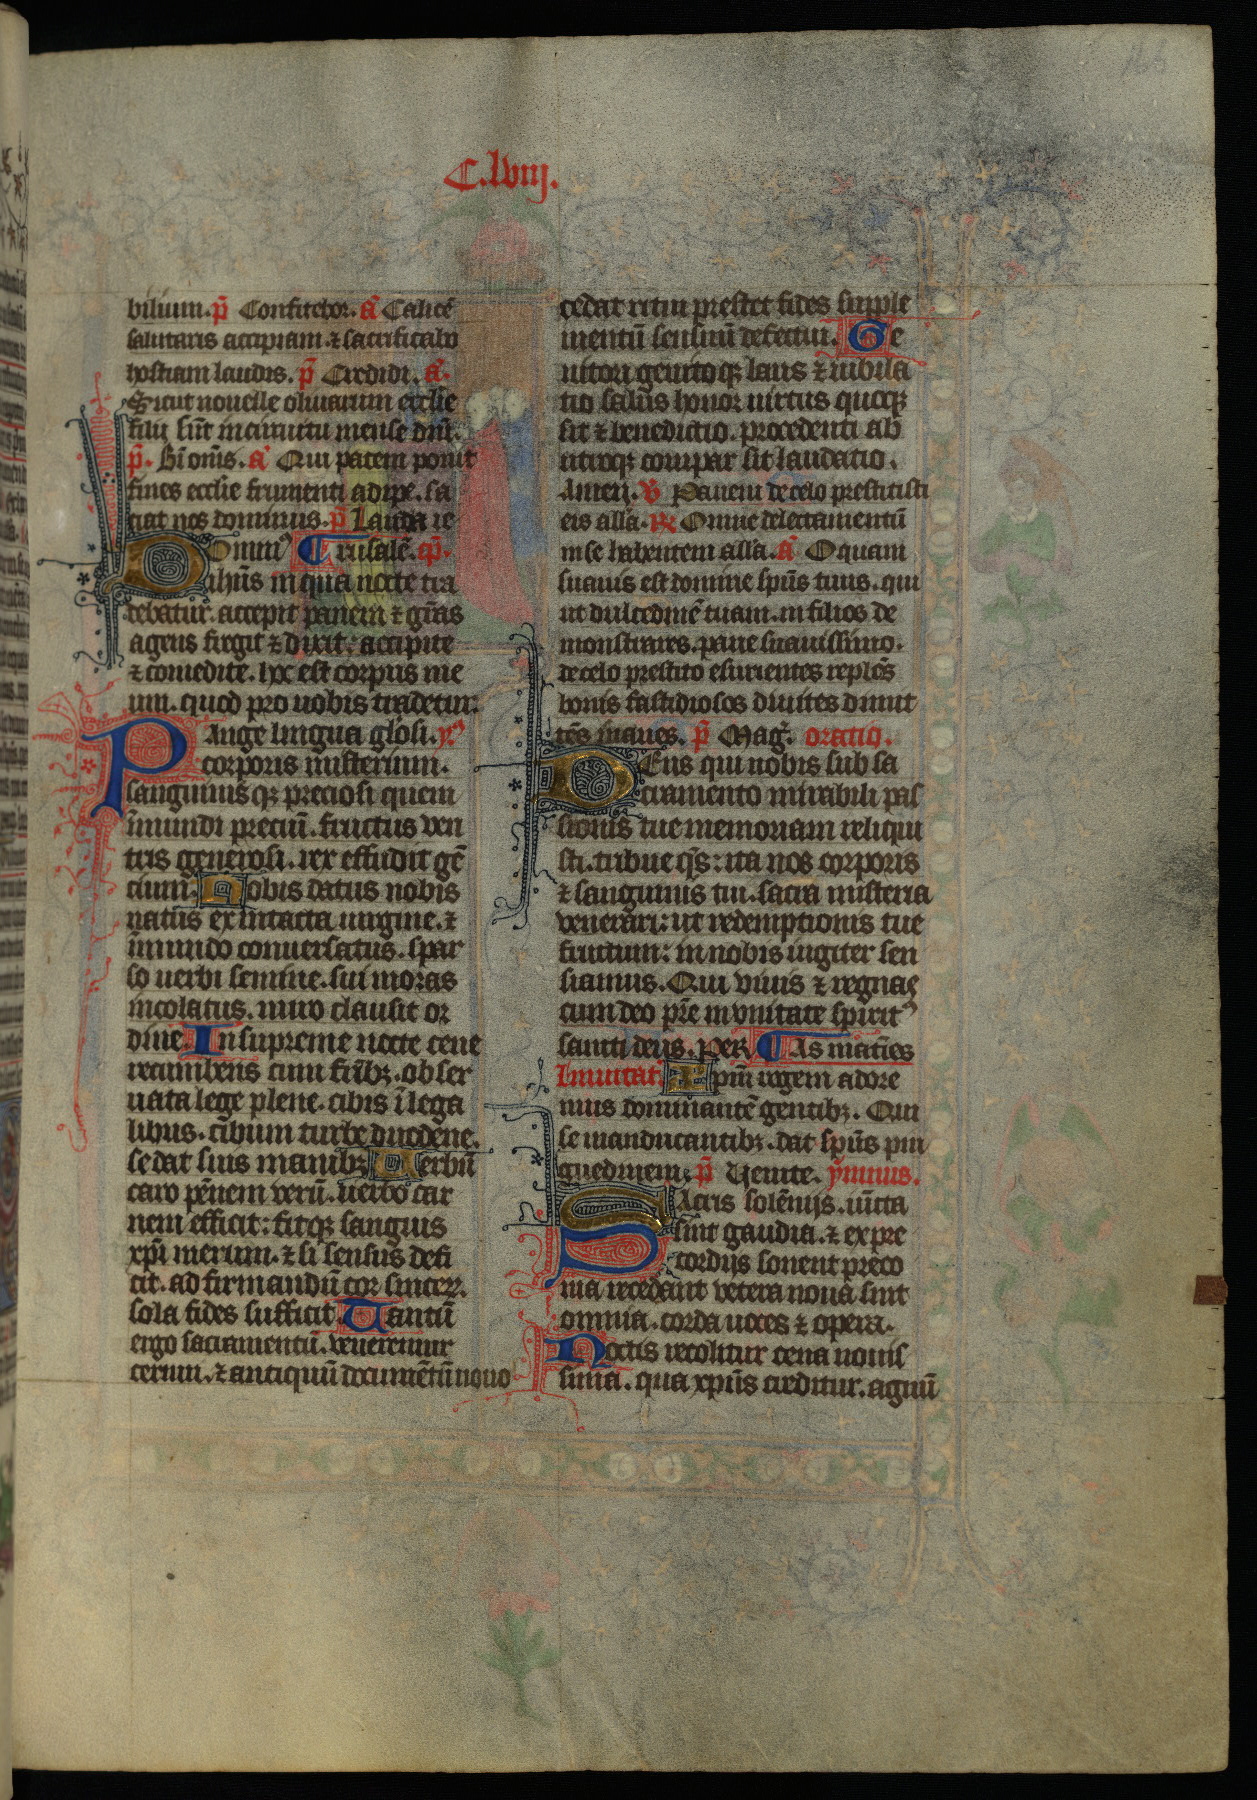 C.lviij.
bilium. p̄ Confitebor. a᷑ Calicē
salutaris accipiam ⁊ sacrificabo
hostiam laudis. p̄ Credidi. a᷑.
Sicut nouelle oliuarum ecclīe
filij sūt in circuitu mense dn̄i.
p̄. Bī om̄s. a᷑ Qui pacem ponit
fines ecclīe frumenti adipe. sa
ciat nos dominus. p̄ Lauda ie
rusalē. cp̄.
Ominꝰ
ihūs in qua nocte tra
debatur. accepit panem ⁊ gr̄as
agens fregit ⁊ dixit: accipite
⁊ comedite. hoc est corpus me
um. quod pro uobis tradetur.
PAnge lingua glōsi. ym̄
corporis misterium.
sanguinis qꝫ preciosi quem
ī mundi preciū. fructus ven
tris generosi. rex effudit gē
cium. Nobis datus nobis
natus ex intacta uirgine. ⁊
ī mundo conuersatus. spar
so uerbi semine. sui moras
incolatus. miro clausit or
dine. In supreme nocte cene
recumbens cum frībꝫ. obser
uata lege plene. cibis ī lega
libus. cibum turbe duodene.
se dat suis manibꝫ Verbū
caro pānem verū. uerbo car
nem efficit: fitqꝫ sanguis
xp̄i merum. ⁊ si sensus defi
cit. ad firmandū cor sincerz.
sola fides sufficit Tantū
ergo sacramentū. veneremur
cernui. ⁊ antiquū documētū nouo
cedat ritui prestet fides supple
mentū sensuū defectui. Ge
nitori genitoqꝫ laus ⁊ iubila
tio salus honor uirtus quoqꝫ
sit ⁊ benedictio. procedenti ab
utroqꝫ compar sit laudatio.
Amen. v Panem de celo prestitisti
eis all̄a. ℟ Omne delectamentū
in se habentem all̄a. a᷑ O quam
suauis est domine sp̄us tuus. qui
ut dulcedinē tuam. in filios de
monstrares. pane suauissimo.
de celo prestito esurientes reples
bonis fastidiosos diuites dimit
tēs inanes. p̄ Mag᷑. oratio.
DEus qui nobis sub sa
cramento mirabili pas
sionis tue memoriam reliqui
sti. tribue qs̄: ita nos corporis
⁊ sanguinis tui. sacra misteria
venerari: ut redemptionis tue
fructum: in nobis iugiter sen
tiamus. Qui viuis ⁊ regnas
cum deo pr̄e in vnitate spiritꝰ
sancti deus. per. As matīes
Inuitat. Xpm̄ regem adore
mus dominantē gentibꝫ. Qui
se manducantibꝫ. dat sp̄us pin
guedinem. p̄ Venite. ymnus.
SAcris solēnijs. iūcta
sint gaudia. ⁊ ex pre
cordijs sonent preco
nia recedant vetera noua sint
omnia. corda uoces ⁊ opera.
Noctis recolitur cena nouis
sima. qua xp̄us creditur. agnū